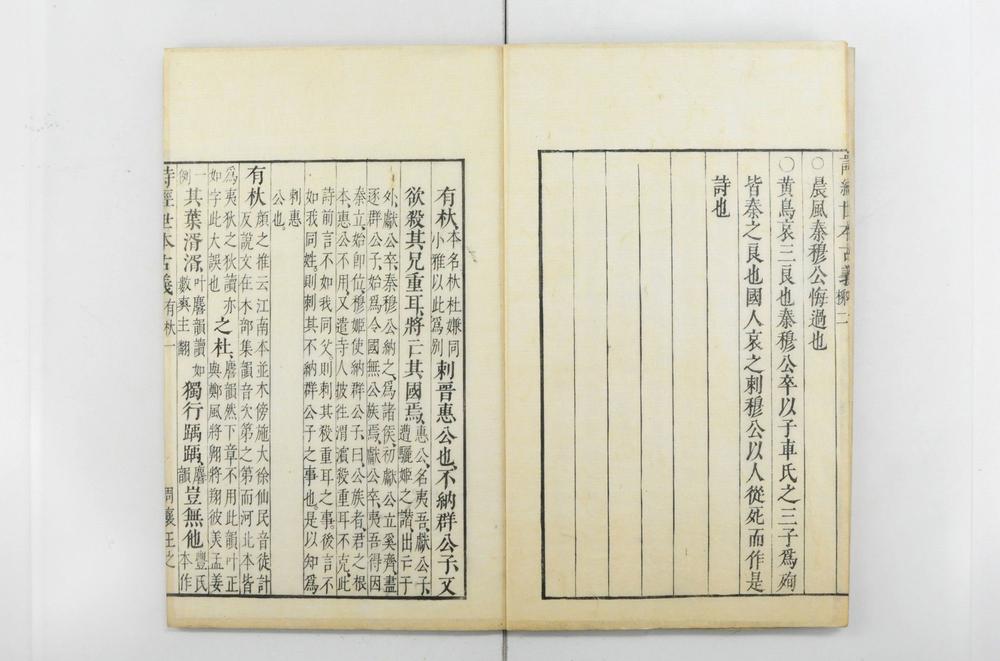 詩經世本古義
○晨風秦穆公悔過也
○黄鳥哀三良也秦穆公卒以子車氏之三子爲殉
皆秦之良也國人哀之刺穆公以人從死而作是
詩也
有杕、本名杕杜嫌同
小雅以此爲别
刺晉惠公也、不納群公子、又
欲殺其兄重耳、將亡其國焉、
惠公、名夷吾、獻公子、
遭驪姬之譖、出亡于
外、獻公卒、秦穆公納之、爲諸侯、初獻公立奚齊、盡
逐群公子、始爲令國無公族焉、獻公卒、夷吾得因
秦立、始卽位、穆姬使納群公子、曰公族者、君之根
本、惠公不用、又遣寺人披徃渭濱殺重耳不克、此
詩前言不如我同父、則刺其殺重耳之事、後言不
如我同姓、則刺其不納群公子之事也、是以知爲
刺惠
公也、
有杕
顔之推云江南本並木傍施大徐仙民音徒計
反說文在木部集韻音次第之第而河北本皆
爲夷狄之狄讀亦
如字此大誤也
之杜、
麌韻然下章不用此韻叶正
與鄭風將翱將翔彼美孟姜
一
例
其葉湑湑、
叶麌韻讀如
獨行踽踽、
麌
韻
豈無他
豐氏
本作
詩經世本古義
有杕一
周襄王之